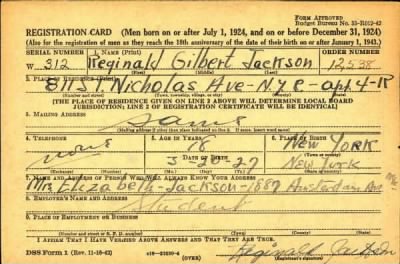 FORM APPROVED
Budget Bureau No. 33-R012-42
REGISTRATION CARD—(Men born on or after July 1, 1924, and on or before December 31, 1924)
(Also for the registration of men as they reach the 18th anniversary of the date of their birth on or after January 1, 1943.)
SERIAL NUMBER 1. NAME (Print) ORDER NUMBER
W 312 Reginald Gilbert Jackson 12,538
(First) (Middle) (Last)
2. PLACE OF RESIDENCE (Print)
811 St Nicholas Ave-N.Y.C-apt. 4-R
(Number and street) (Town, township, village, or city) (County) (State)
[THE PLACE OF RESIDENCE GIVEN ON LINE 2 ABOVE WILL DETERMINE LOCAL BOARD
JURISDICTION; LINE 2 OF REGISTRATION CERTIFICATE WILL BE IDENTICAL]
3. MAILING ADDRESS
Same
[Mailing address if other than place indicated on line 2. If same, insert word same]
4. TELEPHONE 5. AGE IN YEARS 6. PLACE OF BIRTH
none 18 New York
DATE OF BIRTH (Town or county)
3-20-27 New York
(Exchange) (Number) (Mo.) (Day) (Yr.) (State or country)
7. NAME AND ADDRESS OF PERSON WHO WILL ALWAYS KNOW YOUR ADDRESS
Mrs. Elizabeth-Jackson-1887 Amsterdam Ave
8. EMPLOYER'S NAME AND ADDRESS
Student
9. PLACE OF EMPLOYMENT OR BUSINESS
(Number and street or R. F. D. number) (Town) (County) (State)
I AFFIRM THAT I HAVE VERIFIED ABOVE ANSWERS AND THAT THEY ARE TRUE.
DSS Form 1 (Rev. 11-16-42) (OVER) Reginald Jackson
(Registrant's signature)